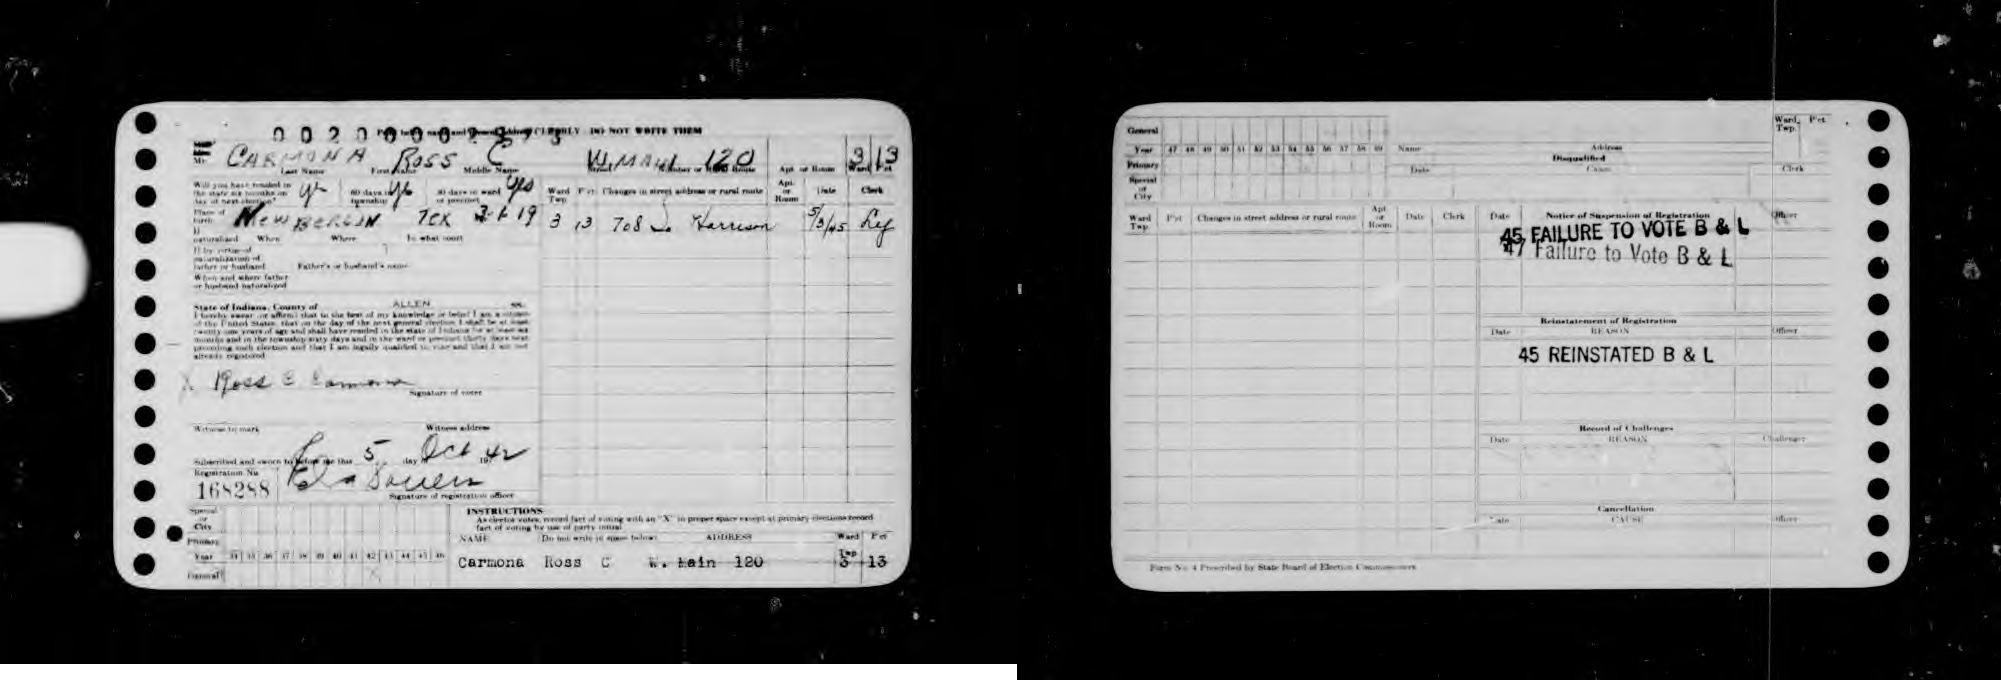 0020000287
CLEARLY DO NOT WRITE THEM
Mr. CARMONA Ross C W. MAIN 120 3 13
Last Name First Name Middle Name Street Number or Rural Route Apt. or Room Ward Pct
Will you have resided in the state six months on day of next election? yes 60 days in township yes 30 days in ward or precinct yes
Ward Twp. Pct Changes in street address or rural route Apt. or Room Date Clerk
Place of birth NEW BERLIN TEX 19
3 13 708 Harrison 5/3/45
If naturalized When Where In what court
If by virtue of naturalization of father or husband Father's or husband's name
When and where father or husband naturalized
State of Indiana, County of ALLEN ss.
I hereby swear or affirm that to the best of my knowledge or belief I am a citizen
of the United States, that on the day of the next general election I shall be at least
twenty-one years of age and shall have resided in the state of Indiana for at least six
months and in the township sixty days and in the ward or precinct thirty days next
preceding such election and that I am legally qualified to vote and that I am not
already registered
X Ross C Carmona
Signature of voter
Witness to mark Witness address
Subscribed and sworn to before me this 5 day Oct 42
Registration No
168288
Signature of registration officer
Special or City
Primary
Year 34 35 36 37 38 39 40 41 42 43 44 45 46
General X
INSTRUCTIONS
As elector votes, record fact of voting with an "X" in proper space except at primary elections record
fact of voting by use of party initial
NAME (Do not write in space below) ADDRESS Ward Twp Pct
Carmona Ross C W. Main 120 3 13
General
Year 47 48 49 50 51 52 53 54 55 56 57 58 59
Primary
Special or City
Name Address
Disqualified
Date Cause Clerk
Ward, Twp. Pct
Ward Twp. Pct Changes in street address or rural route Apt or Room Date Clerk
Date Notice of Suspension of Registration Officer
45 FAILURE TO VOTE B & L
47 Failure to Vote B & L
Reinstatement of Registration
Date REASON Officer
45 REINSTATED B & L
Record of Challenges
Date REASON Challenger
Cancellation
Date CAUSE Officer
Form No. 4 Prescribed by State Board of Election Commissioners